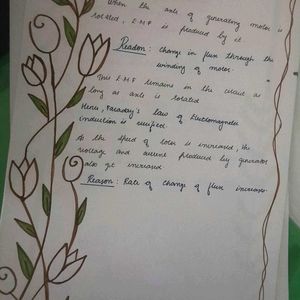 When the axis of generating motor is
rotated, E.M.F is produced by it
Reason: Change in flux through the
winding of motor.
This E.M.F remains in the circuit as
long as axis is rotated
Hence, Faraday's law of Electromagnetic
induction is verified.
As the speed of rotor is increased, the
voltage and current produced by generator
also get increased
Reason: Rate of change of flux increases.